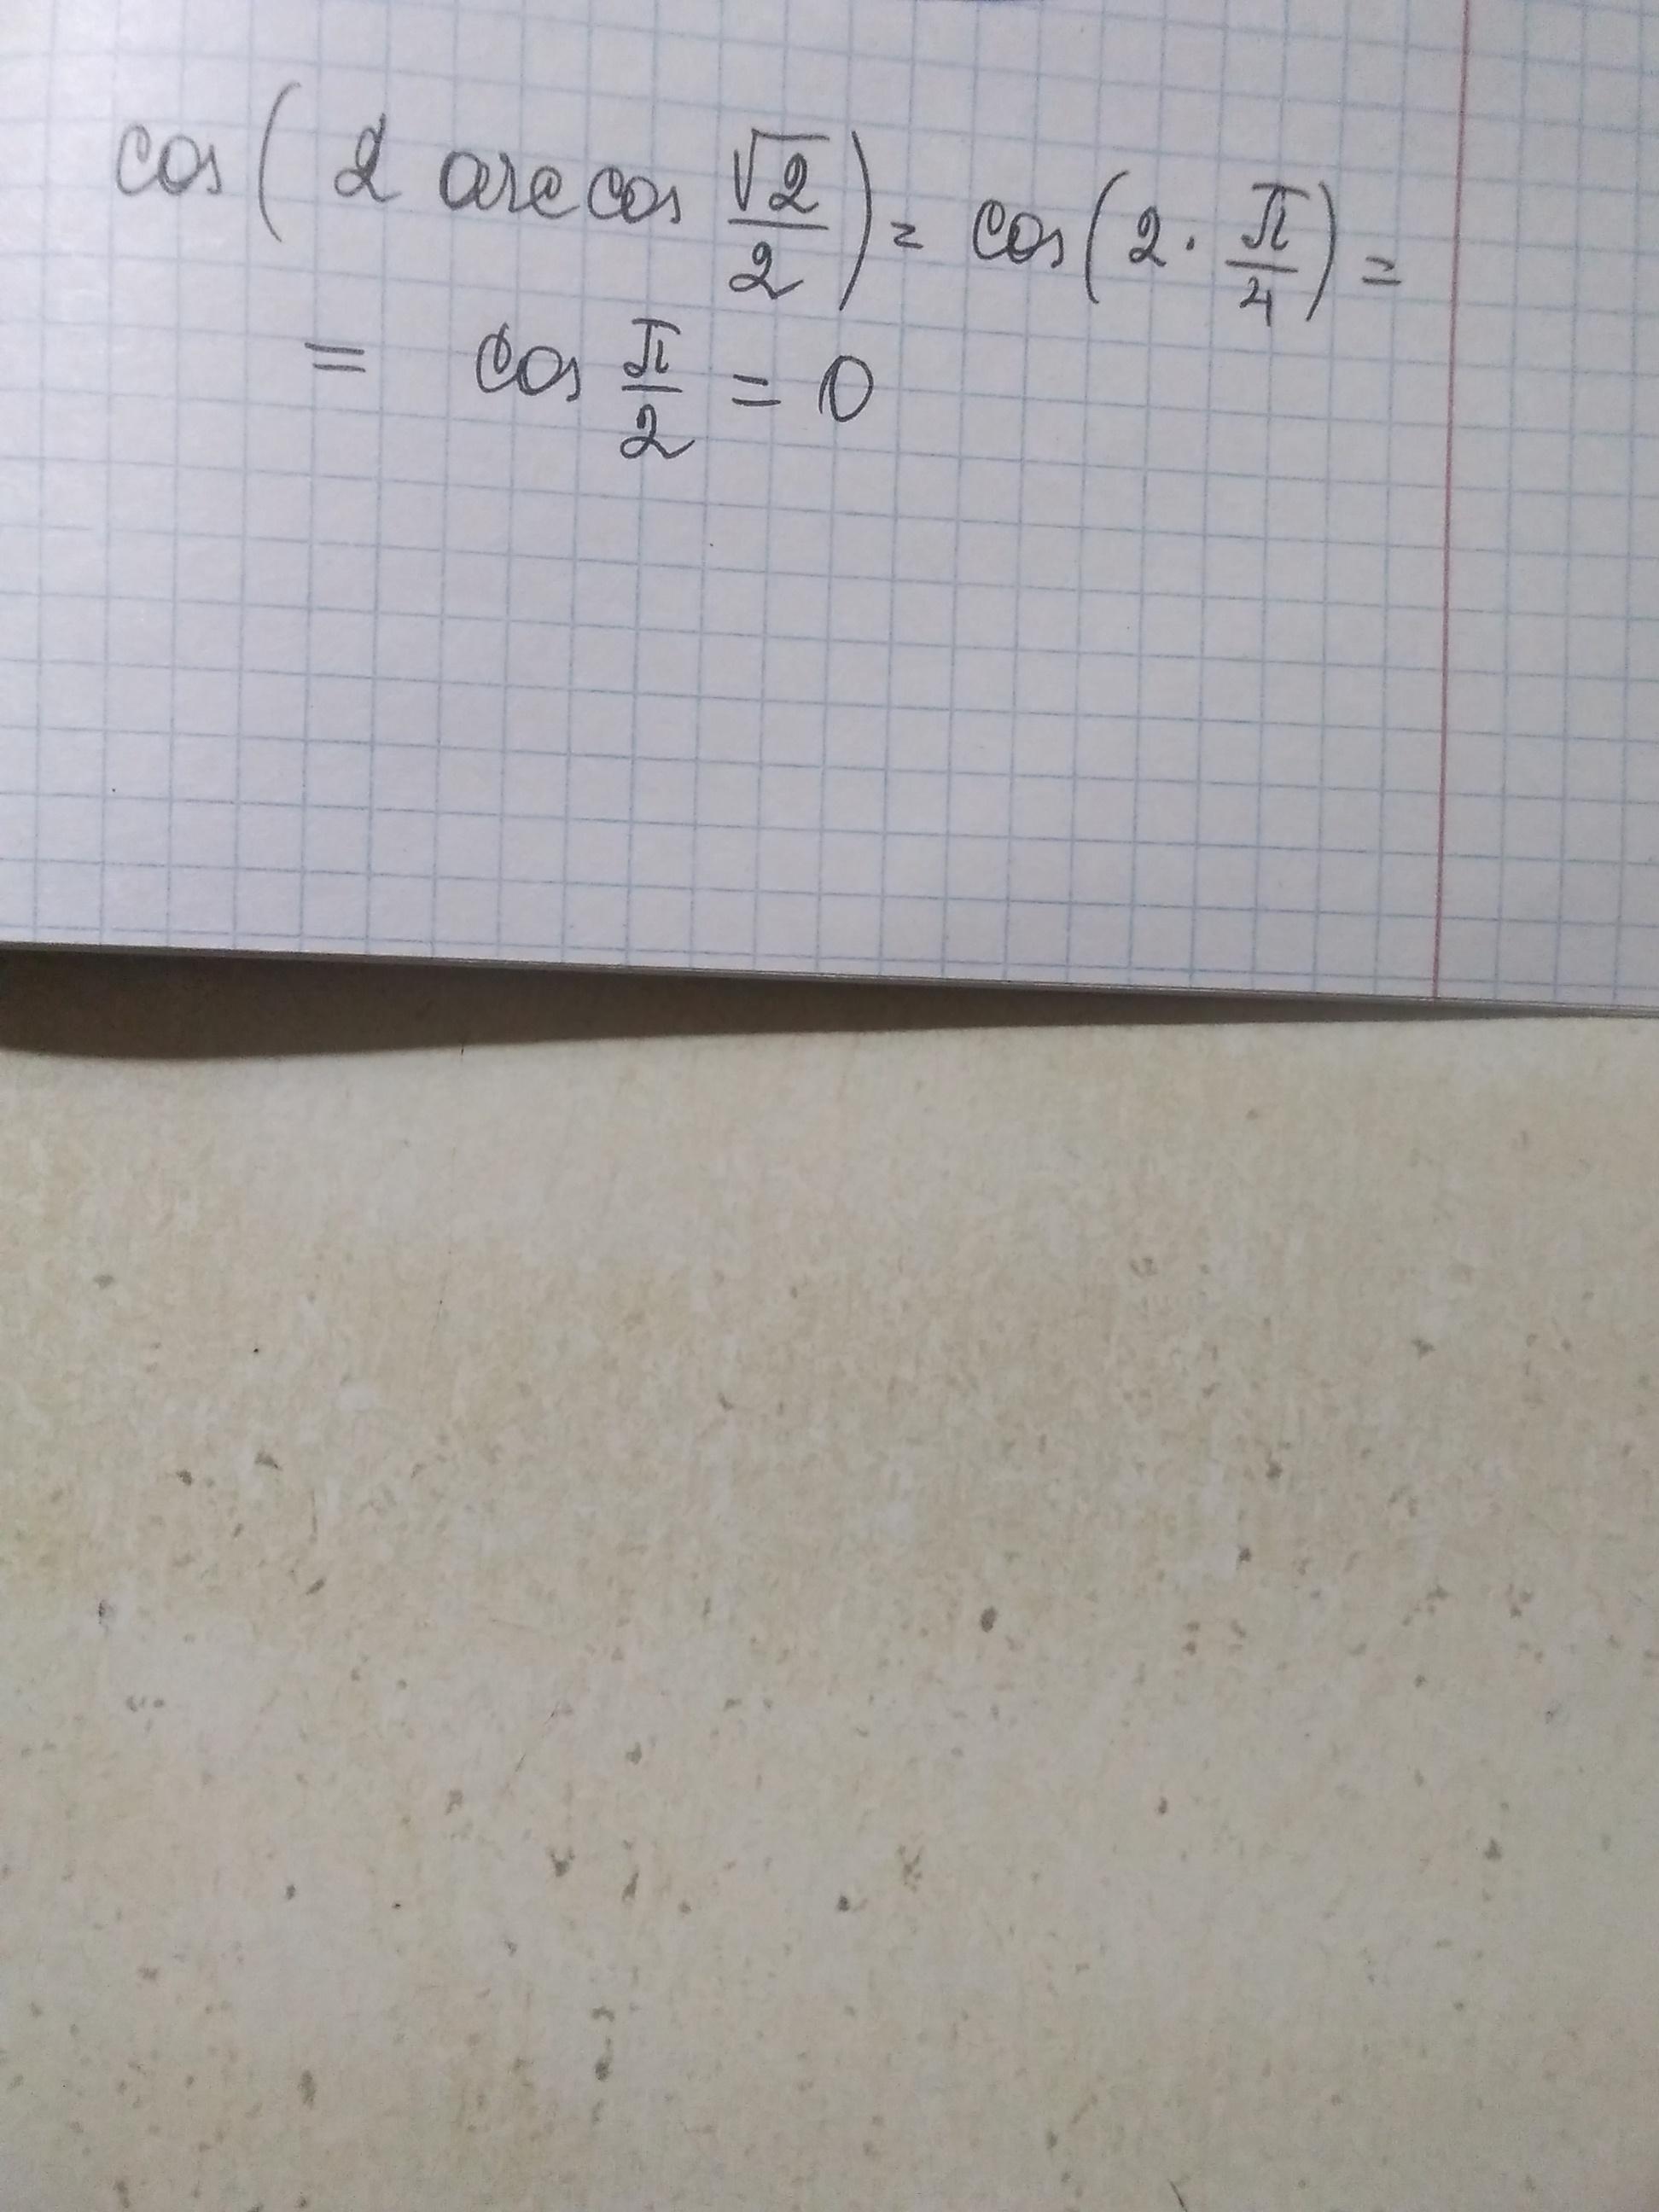 cos( 2 arccos √2/2 ) = cos( 2 · π/4 ) =
= cos π/2 = 0